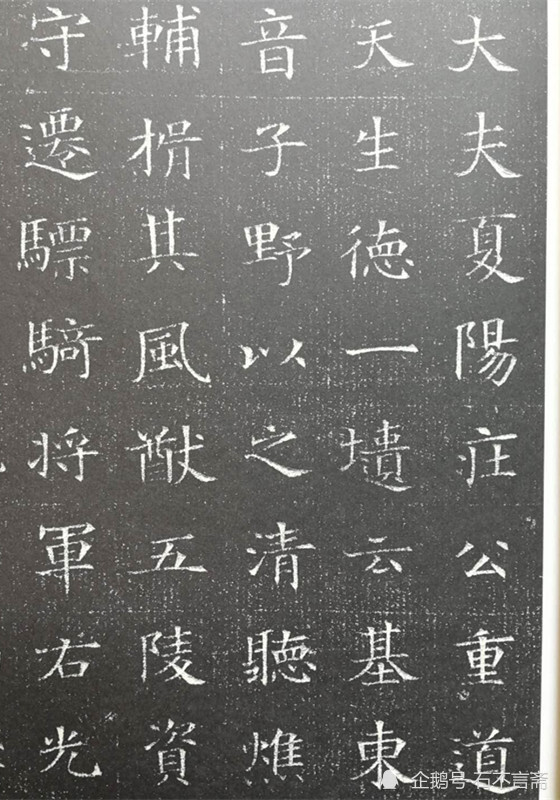 大夫夏陽庄公重道
天生德一墳云基東
音子野以之清聽燋
輔揖其風猷五陵資
守遷驃騎将軍右光
企鹅号 石不言斋